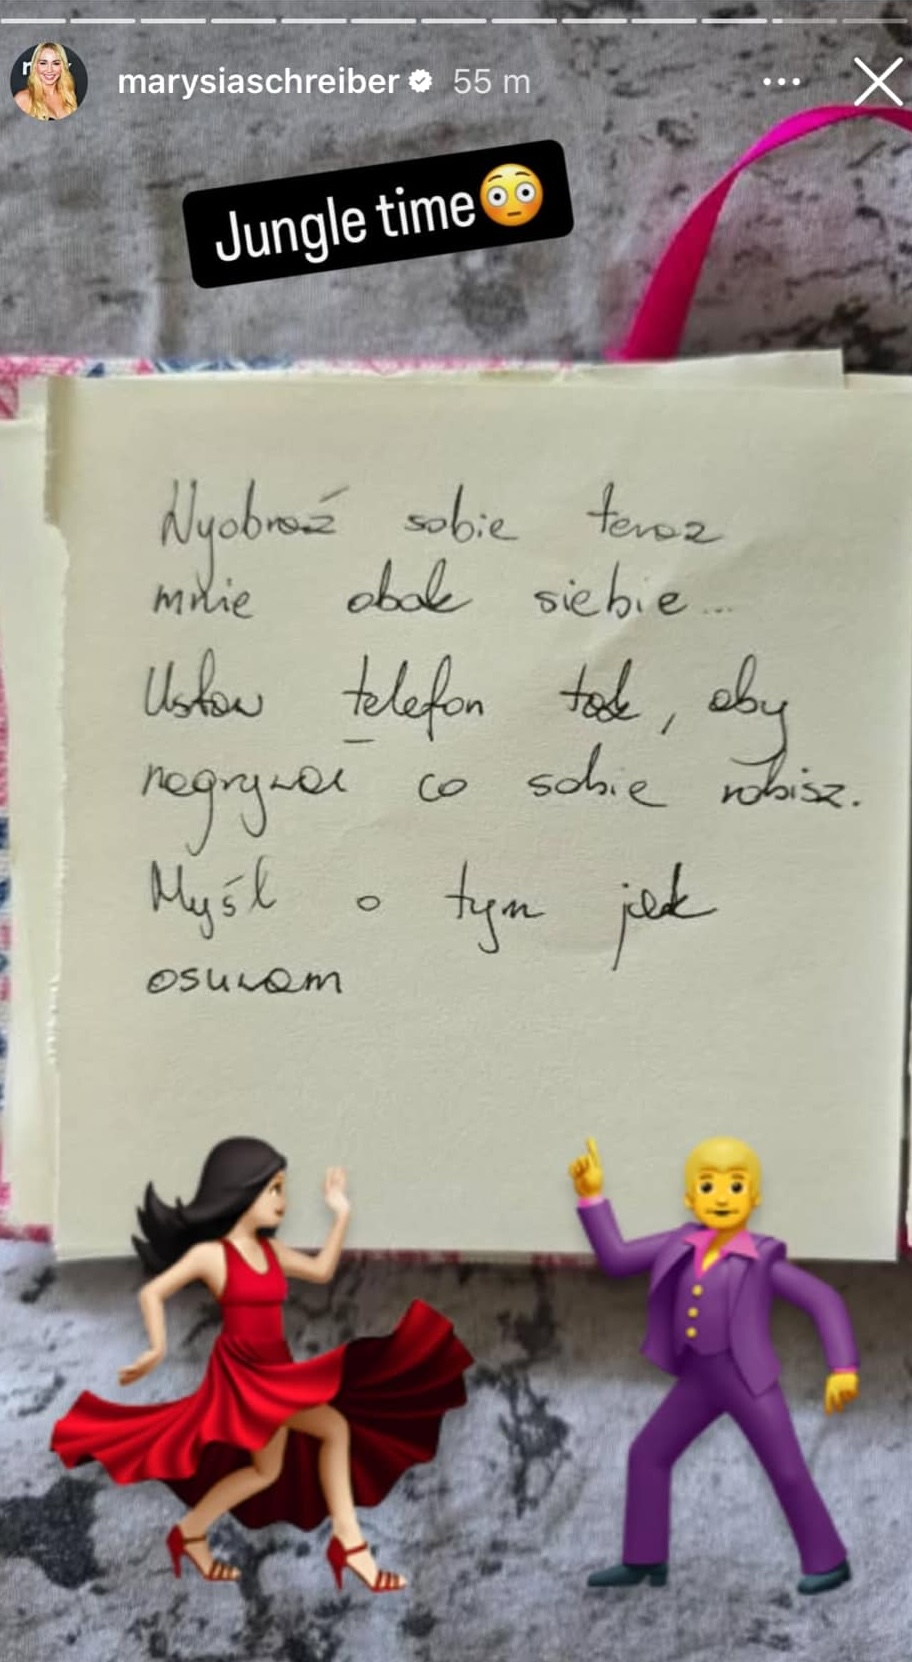 marysiaschreiber 55 m
Jungle time😳
Wyobraź sobie teraz
mnie obok siebie...
Ustaw telefon tak, aby
nagrywał co sobie robisz.
Myśl o tym jak
osuwam